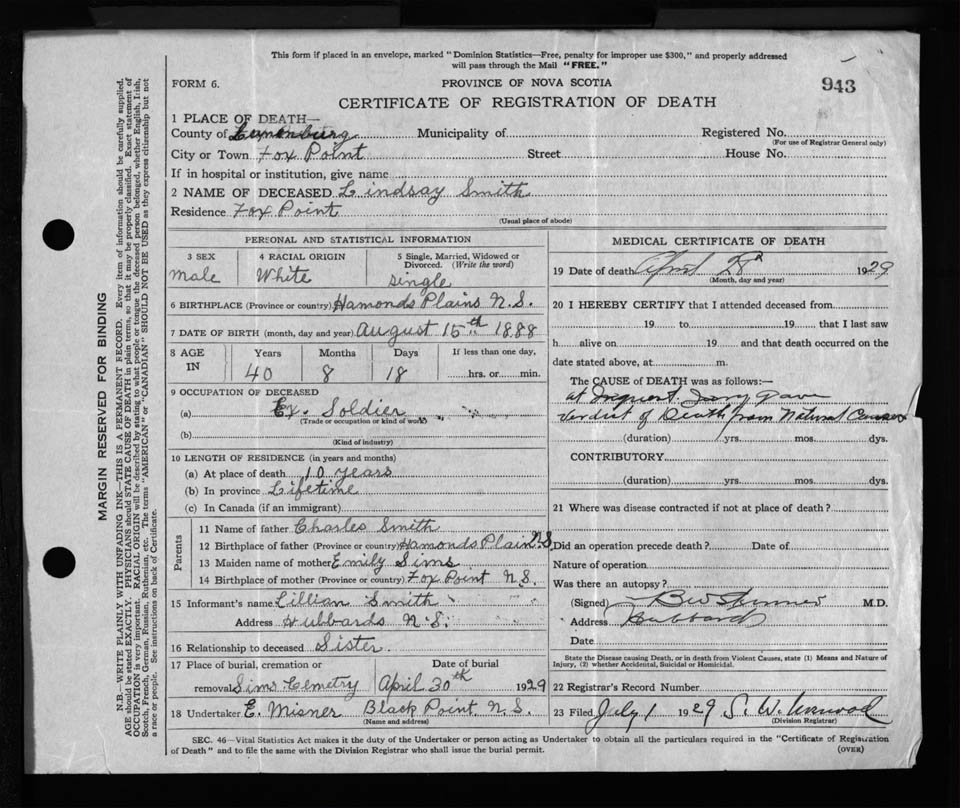 This form if placed in an envelope, marked "Dominion Statistics—Free, penalty for improper use $300," and properly addressed
will pass through the Mail "FREE."
FORM 6.
PROVINCE OF NOVA SCOTIA
943
CERTIFICATE OF REGISTRATION OF DEATH
1 PLACE OF DEATH—
County of Lunenburg Municipality of Registered No.
(For use of Registrar General only)
City or Town Fox Point Street House No.
If in hospital or institution, give name
2 NAME OF DECEASED Lindsay Smith
Residence Fox Point
(Usual place of abode)
PERSONAL AND STATISTICAL INFORMATION
3 SEX
male
4 RACIAL ORIGIN
White
5 Single, Married, Widowed or
Divorced. (Write the word)
single
6 BIRTHPLACE (Province or country) Hamonds Plains N.S.
7 DATE OF BIRTH (month, day and year) August 15th 1888
8 AGE
IN
Years
40
Months
8
Days
18
If less than one day,
hrs. or min.
9 OCCUPATION OF DECEASED
(a) Ex. Soldier
(Trade or occupation or kind of work)
(b)
(Kind of industry)
10 LENGTH OF RESIDENCE (in years and months)
(a) At place of death 10 years
(b) In province Lifetime
(c) In Canada (if an immigrant)
Parents
11 Name of father Charles Smith
12 Birthplace of father (Province or country) Hamonds Plain N.S.
13 Maiden name of mother Emily Sims
14 Birthplace of mother (Province or country) Fox Point N.S.
15 Informant's name Lillian Smith
Address Hubbards N.S.
16 Relationship to deceased Sister
17 Place of burial, cremation or
removal Sims Cemetry
Date of burial
April 30th 1929
18 Undertaker E. Misner Black Point N.S.
(Name and address)
MEDICAL CERTIFICATE OF DEATH
19 Date of death April 28 1929
(Month, day and year)
20 I HEREBY CERTIFY that I attended deceased from
19 to 19 that I last saw
h alive on 19 and that death occurred on the
date stated above, at m.
The CAUSE OF DEATH was as follows:—
at Inquest Jury gave
verdict of Death from Natural Causes
(duration) yrs. mos. dys.
CONTRIBUTORY
(duration) yrs. mos. dys.
21 Where was disease contracted if not at place of death?
Did an operation precede death? Date of
Nature of operation
Was there an autopsy?
(Signed) M.D.
Address Hubbards
Date
State the Disease causing Death, or in death from Violent Causes, state (1) Means and Nature of
Injury, (2) whether Accidental, Suicidal or Homicidal.
22 Registrar's Record Number
23 Filed July 1 1929 S. W.
(Division Registrar)
SEC. 46—Vital Statistics Act makes it the duty of the Undertaker or person acting as Undertaker to obtain all the particulars required in the "Certificate of Registration
of Death" and to file the same with the Division Registrar who shall issue the burial permit.
(OVER)
MARGIN RESERVED FOR BINDING
N.B.—WRITE PLAINLY WITH UNFADING INK—THIS IS A PERMANENT RECORD. Every item of information should be carefully supplied.
AGE should be stated EXACTLY. PHYSICIANS should STATE CAUSE OF DEATH in plain terms, so that it may be properly classified. Exact statement of
OCCUPATION is very important. RACIAL ORIGIN will be described by stating to what people or tongue the deceased person belonged, whether English, Irish,
Scotch, French, German, Russian, Ruthenian, etc. The terms "AMERICAN" or "CANADIAN" SHOULD NOT BE USED as they express citizenship but not
a race or people. See instructions on back of Certificate.